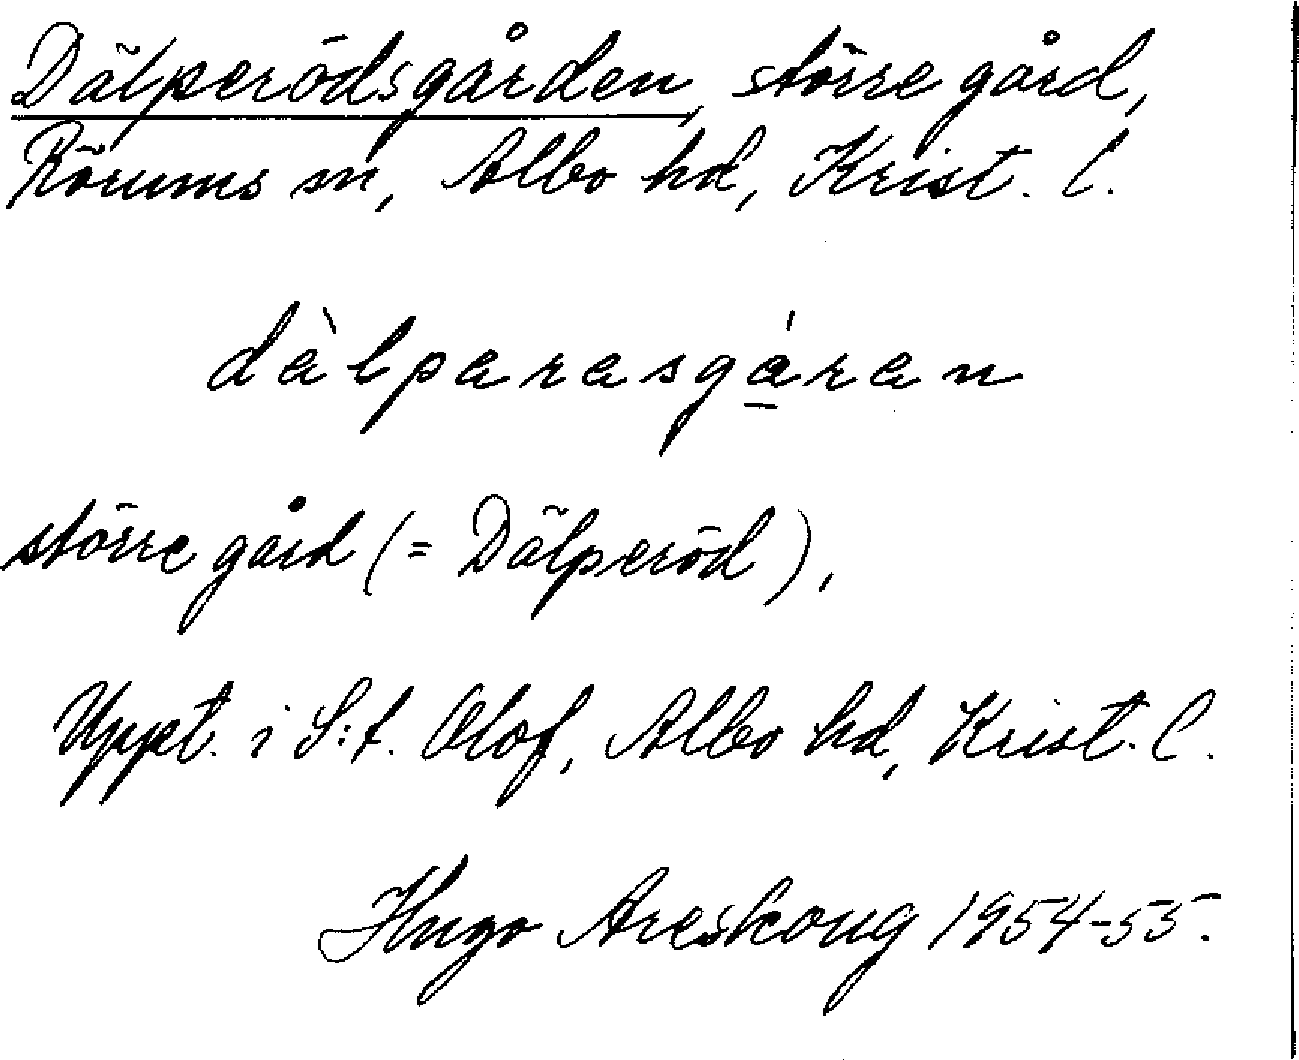 Dälperödsgården, större gård,
Rörums sn, Albo hd, Krist. l.
dàlparasgáran
större gård (= Dälperöd),
Uppt. i S:t. Olof, Albo hd, Krist. l.
Hugo Areskoug 1954-55.